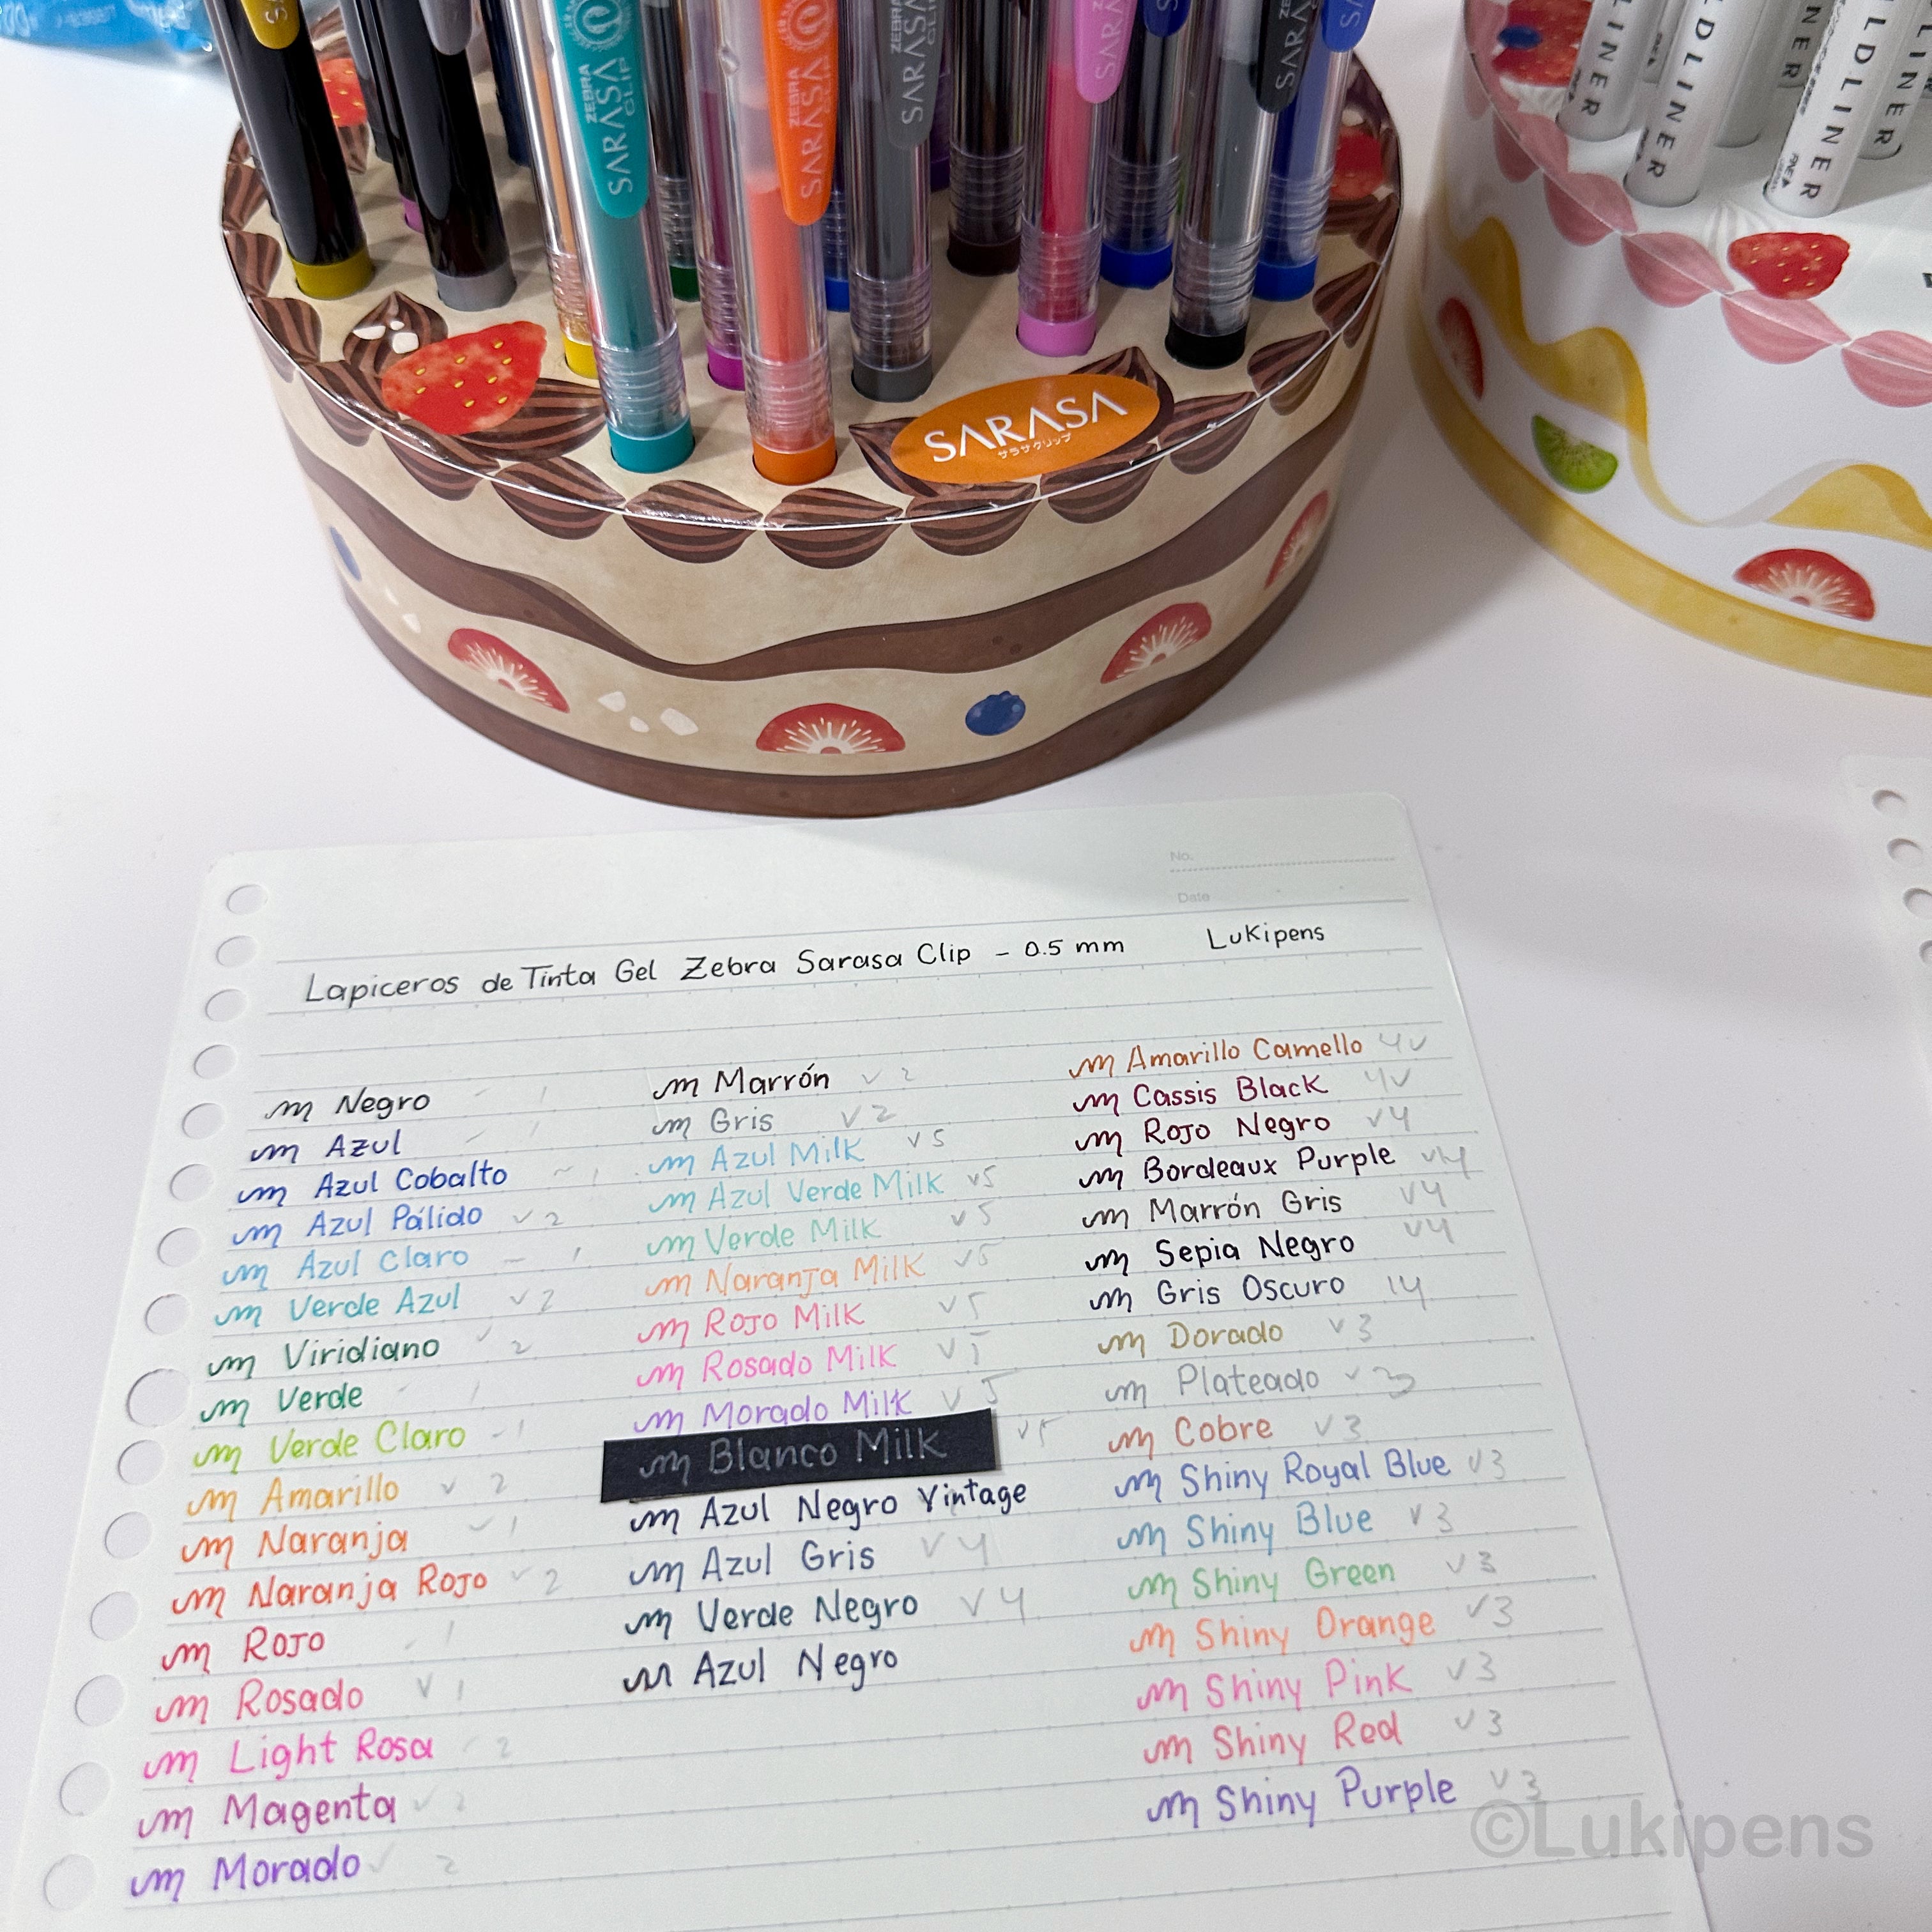 ZEBRA
SARASA
CLIP
ZEBRA
SARASA
CLIP
SARASA
SARASA
SARASA
SARASA
サラサクリップ
LINER
LDLINER
INER
ILDLINER
LINER
No.
Date
Lapiceros de Tinta Gel Zebra Sarasa Clip - 0.5 mm Lukipens
Negro 1
Azul
Azul Cobalto ~ 1
Azul Pálido v 2
Azul Claro - 1
Verde Azul v 2
Viridiano v 2
Verde - 1
Verde Claro - 1
Amarillo v 2
Naranja v 1
Naranja Rojo v 2
Rojo 1
Rosado v 1
Light Rosa 2
Magenta v 2
Morado v 2
Marrón v 2
Gris v 2
Azul Milk v 5
Azul Verde Milk v5
Verde Milk v 5
Naranja Milk v5
Rojo Milk v 5
Rosado Milk v 5
Morado Milk v 5
Blanco Milk v5
Azul Negro Vintage
Azul Gris v 4
Verde Negro v 4
Azul Negro
Amarillo Camello 4v
Cassis Black 4v
Rojo Negro v4
Bordeaux Purple v4
Marrón Gris v4
Sepia Negro v4
Gris Oscuro 14
Dorado v 3
Plateado v 3
Cobre v 3
Shiny Royal Blue v3
Shiny Blue v 3
Shiny Green v 3
Shiny Orange v3
Shiny Pink v 3
Shiny Red v 3
Shiny Purple v 3
©Lukipens